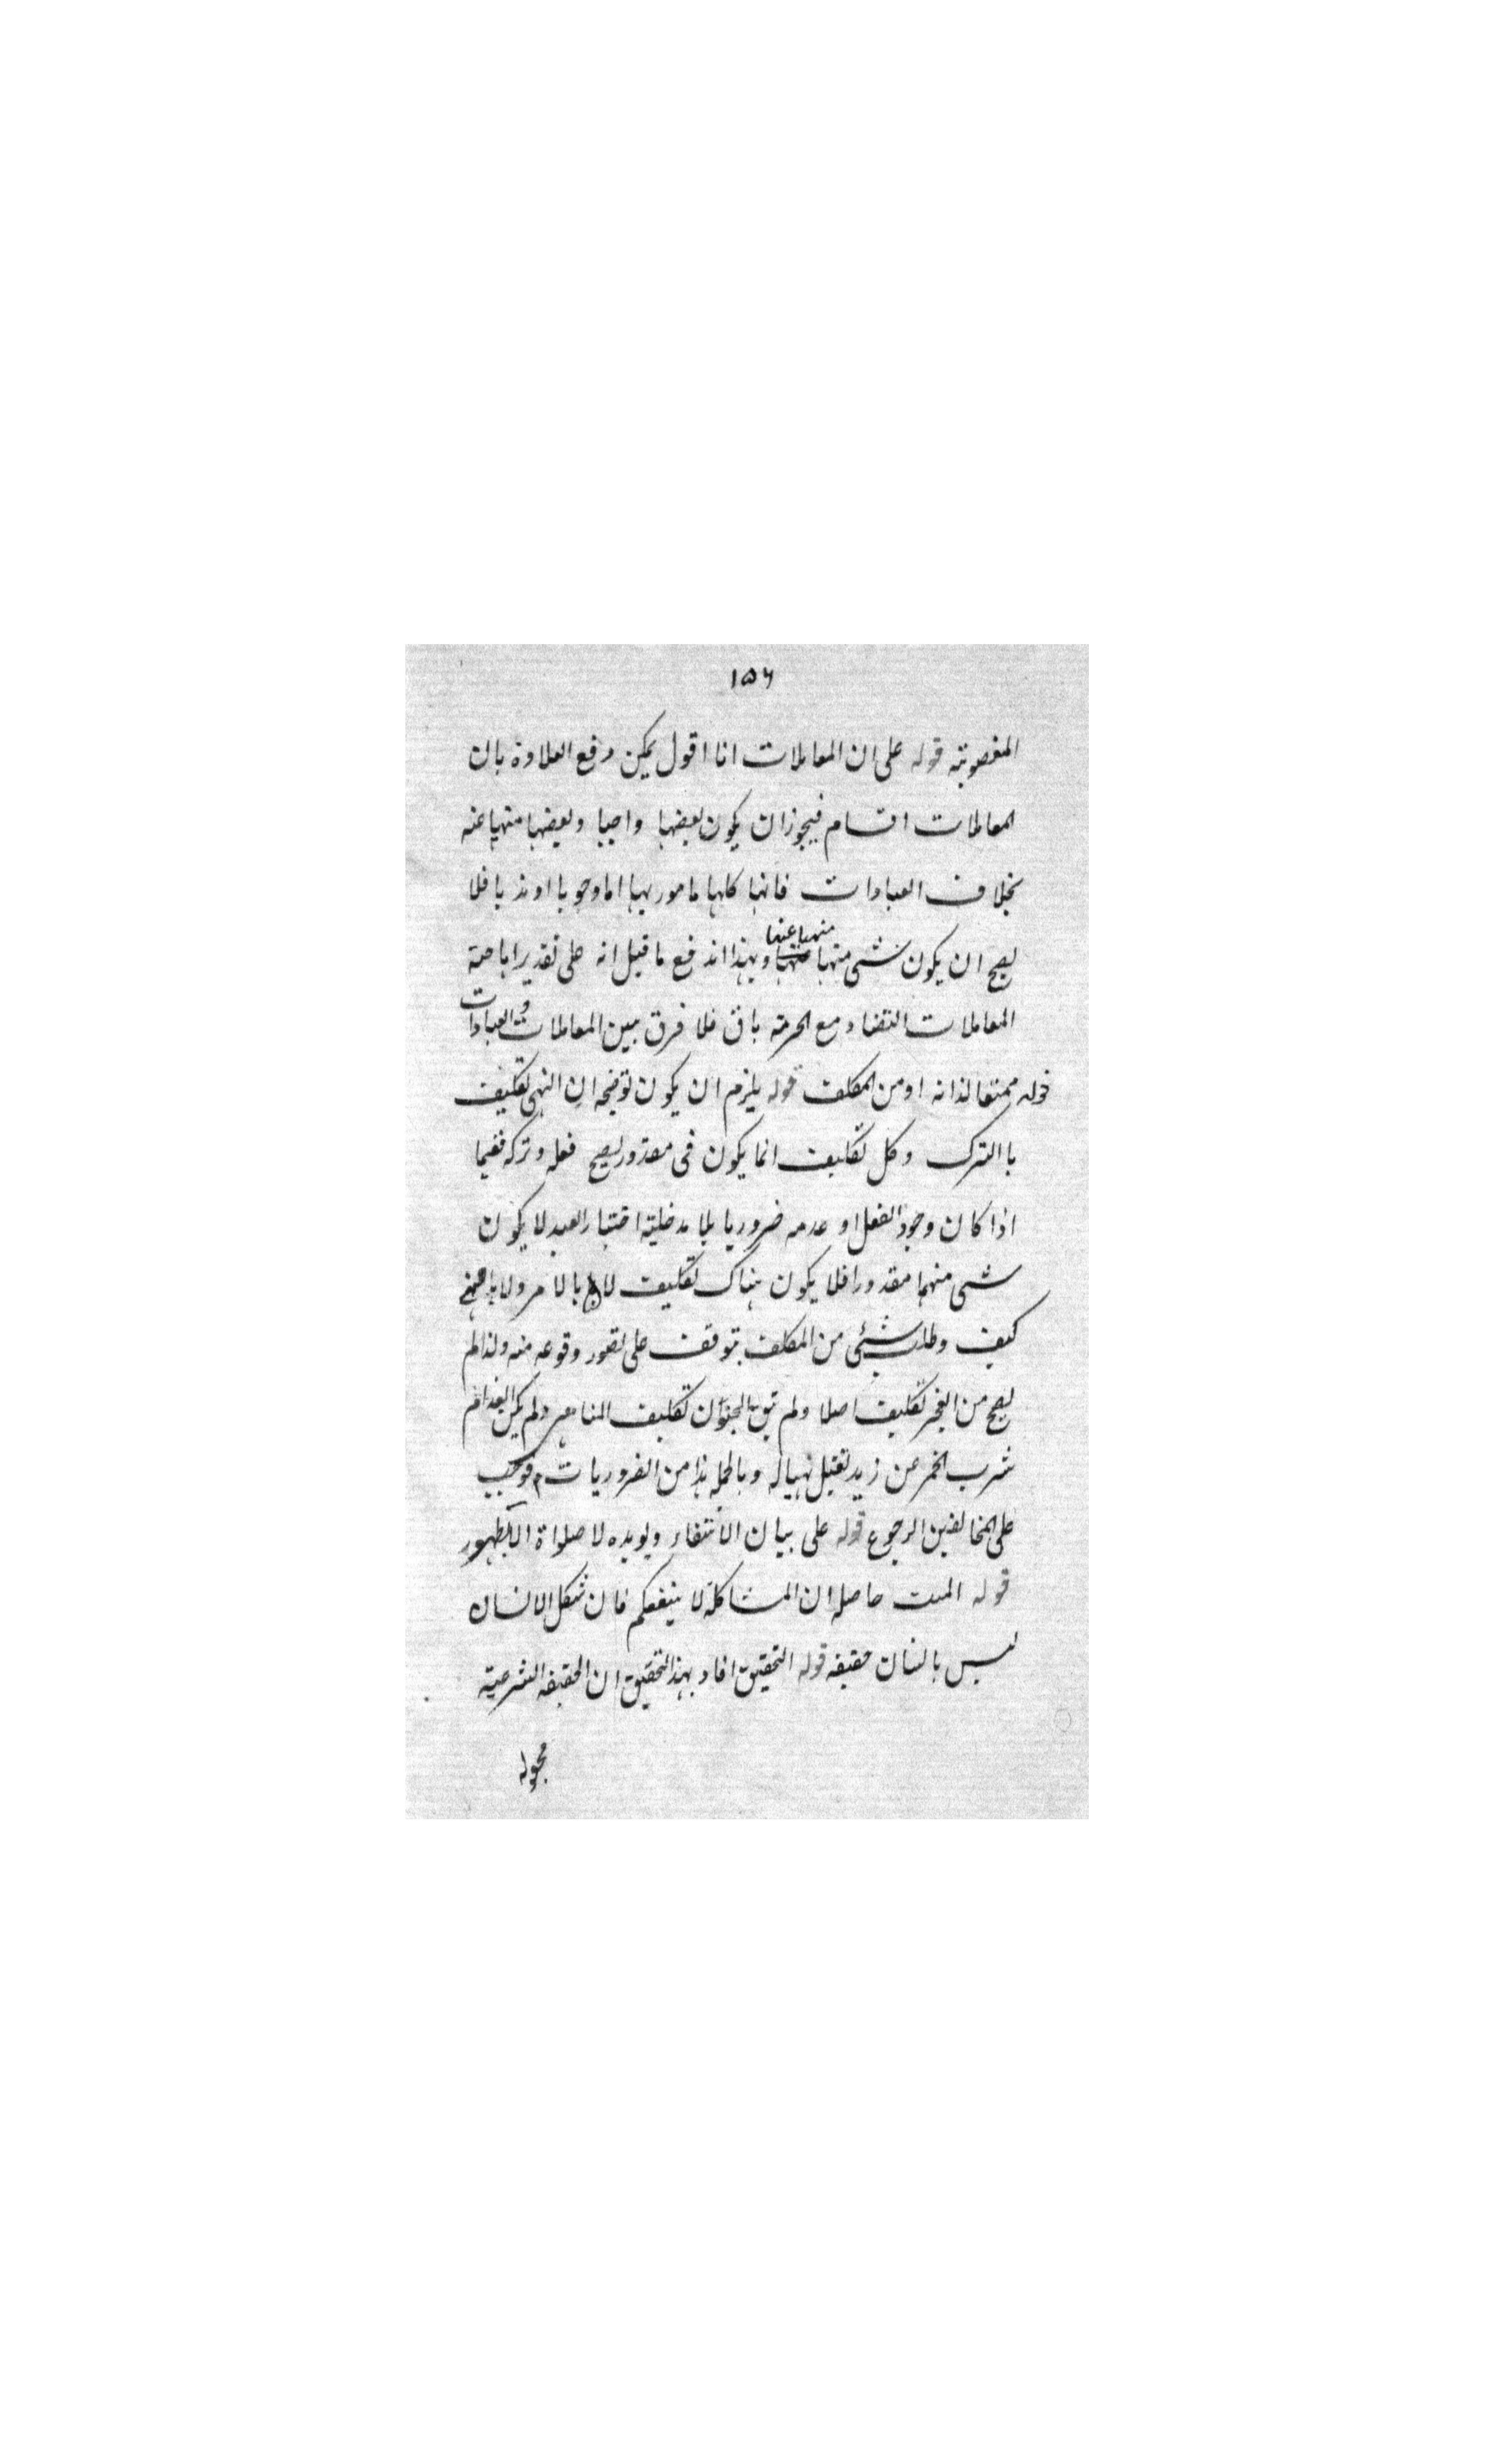 ١٥٦
المغصوبة قوله على ان المعاملات انا اقول يمكن دفع العلاوة بان
المعاملات اقسام فيجوز ان يكون بعضها واجبا وبعضها منهيا عنه
بخلاف العبادات فانها كلها مامور بها اما وجوبا او ندبا فلا
يصح ان يكون شئ منها منهيا عنها وبهذا اندفع ما قيل انه على تقدير اباحة
المعاملات التضاد مع الحرمة باق فلا فرق بين المعاملات وبين العبادات
قوله ممتنعا لذاته او من المكلف قوله يلزم ان يكون توضيحه ان النهى تكليف
بالترك وكل تكليف انما يكون فى مقدور يصح فعله وتركه ففيما
اذا كان وجود الفعل او عدمه ضروريا بلا مدخلية اختيار العبد لا يكون
شئ منهما مقدورا فلا يكون هناك تكليف لا بالامر ولا بالنهى
كيف وطلب شئ من المكلف يتوقف على تصور وقوعه منه ولذا لم
يصح من الغير تكليف اصلا ولم تكليف ولم يكن
شرب الخمر عن زيد نهيا له وبالجملة هذا من الضروريات فوجب
على المخالفين الرجوع قوله على بيان الانتفاء ويويده لا صلواة الا بطهور
قوله الميت حاصله ان المشاكلة لا ينفعكم فان شكل الانسان
ليس بانسان حقيقة قوله التحقيق افاد بهذا التحقيق ان الحقيقة الشرعية